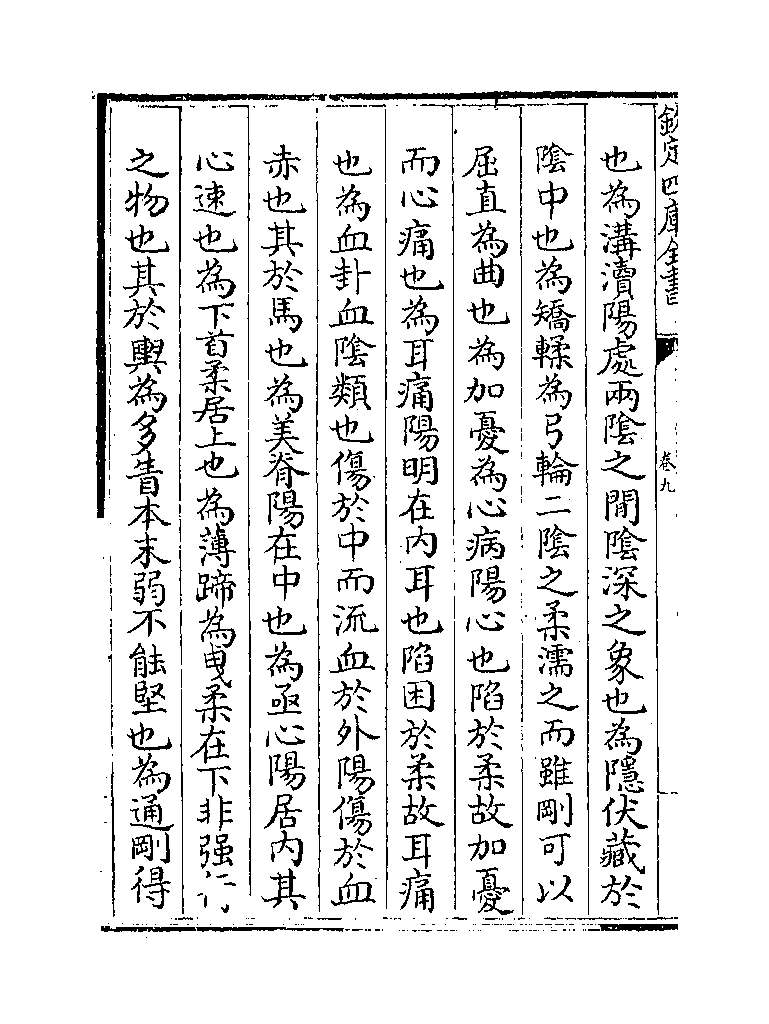 欽定四庫全書
卷九
也為溝瀆陽處兩陰之間陰深之象也為隱伏藏於
陰中也為矯輮為弓輪二陰之柔濡之而雖剛可以
屈直為曲也為加憂為心病陽心也陷於柔故加憂
而心痛也為耳痛陽明在内耳也陷困於柔故耳痛
也為血卦血陰類也傷於中而流血於外陽傷於血
赤也其於馬也為美脊陽在中也為亟心陽居内其
心速也為下首柔居上也為薄蹄為曵柔在下非强行
之物也其於輿為多眚本末弱不能堅也為通剛得